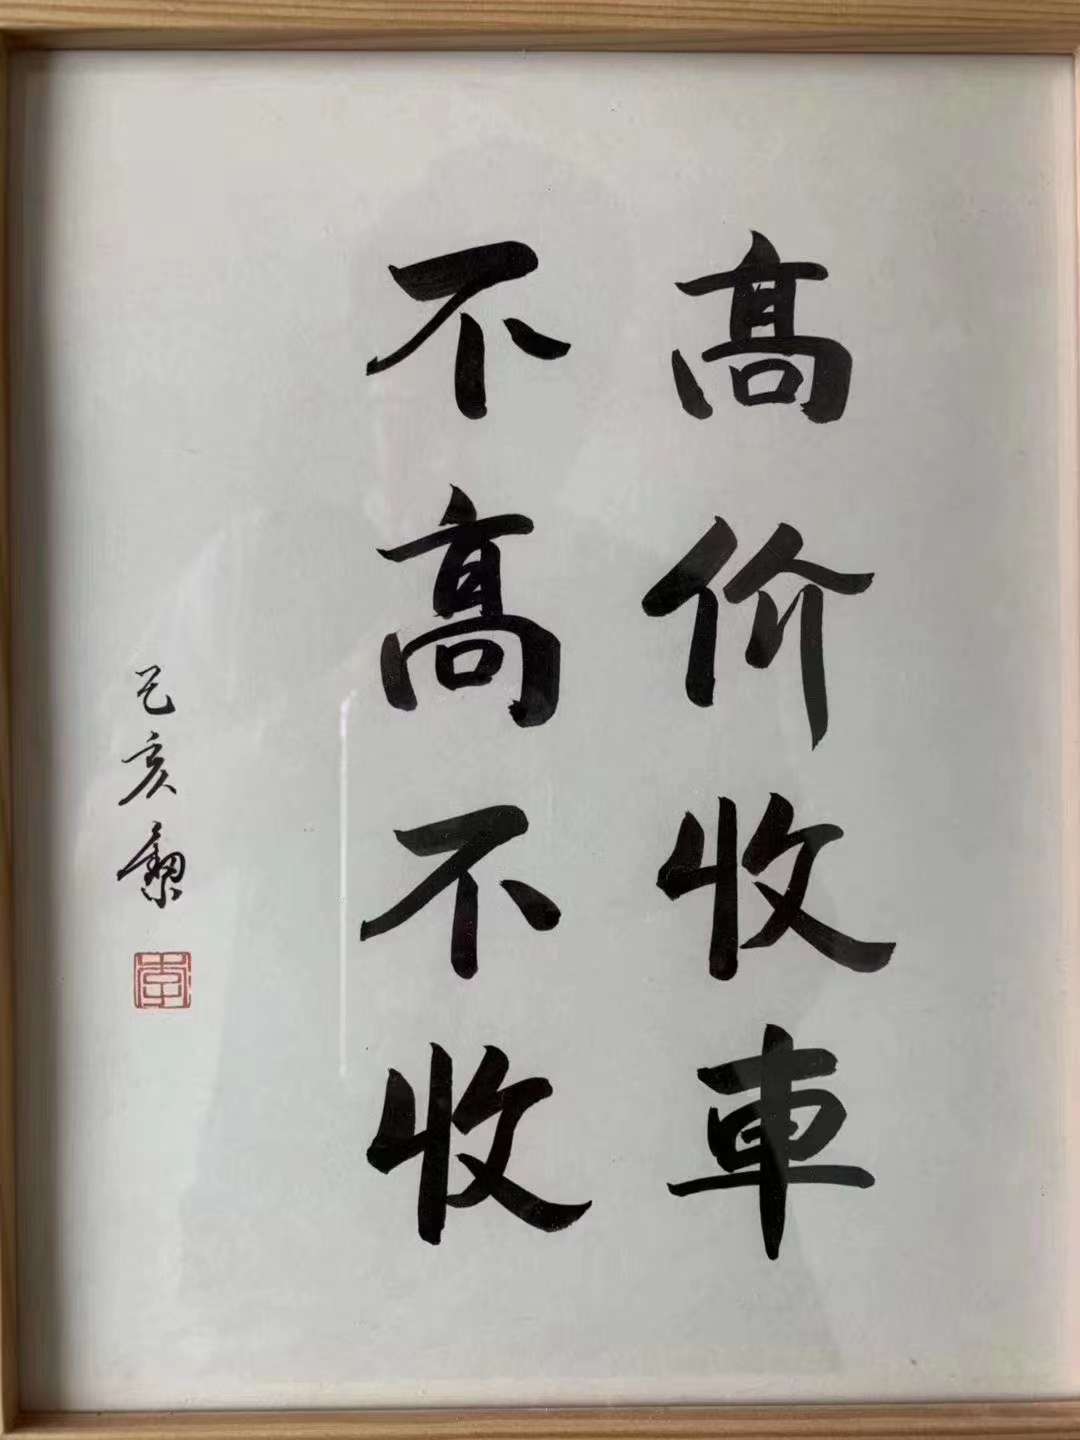 高价收車
不高不收
乙亥